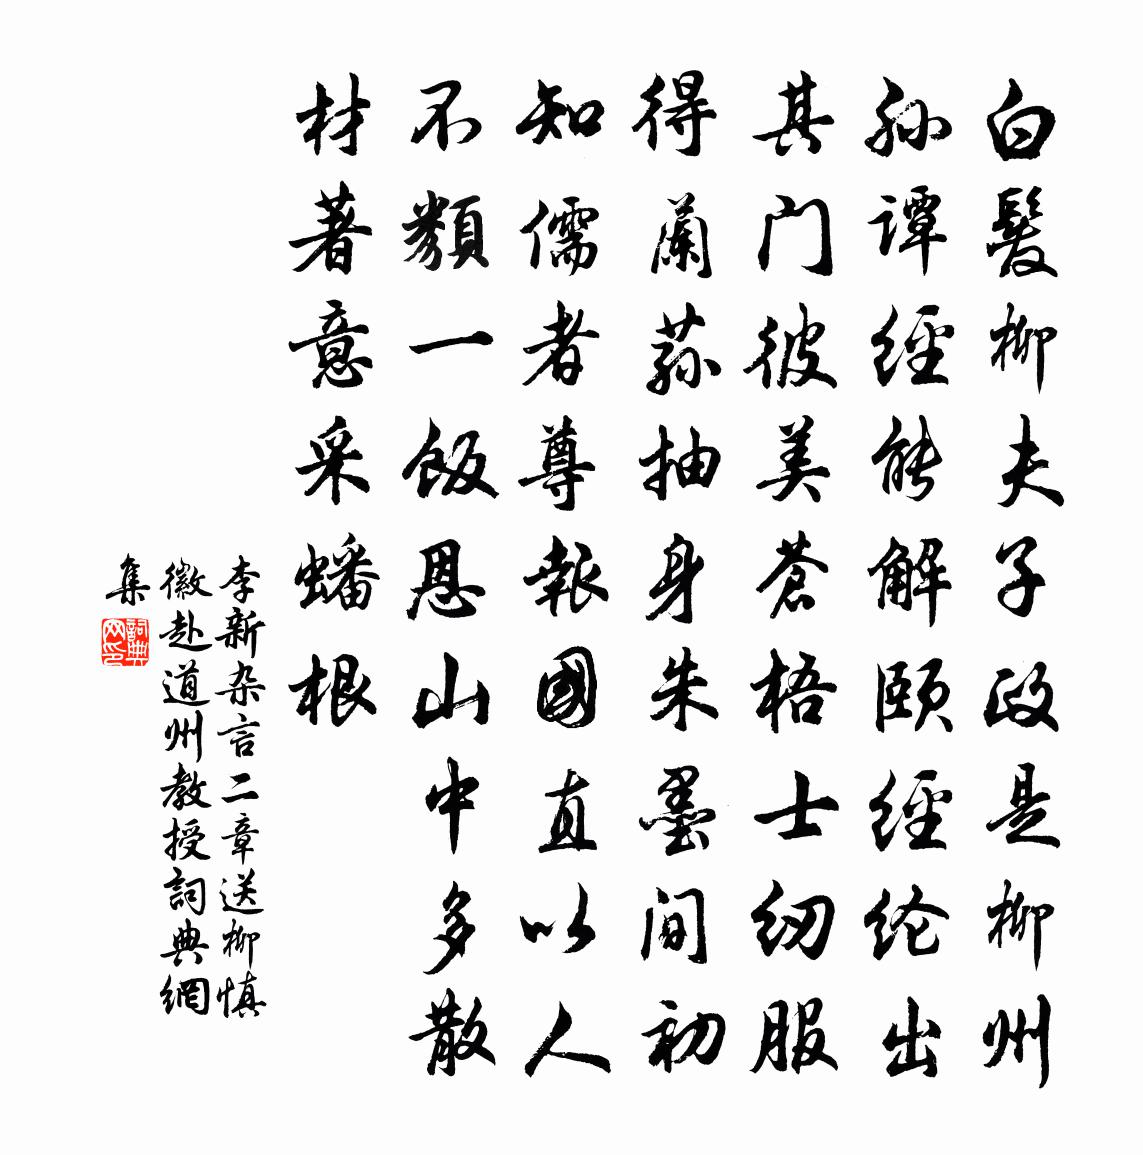 白髮柳夫子政是柳州
孙谭經能解颐經纶出
其门彼美蒼梧士纫服
得蘭荪抽身朱墨间初
知儒者尊報國直以人
不類一飯恩山中多散
材著意采蟠根
李新杂言二章送柳慎
徽赴道州教授詞典網
集
詞典
网印